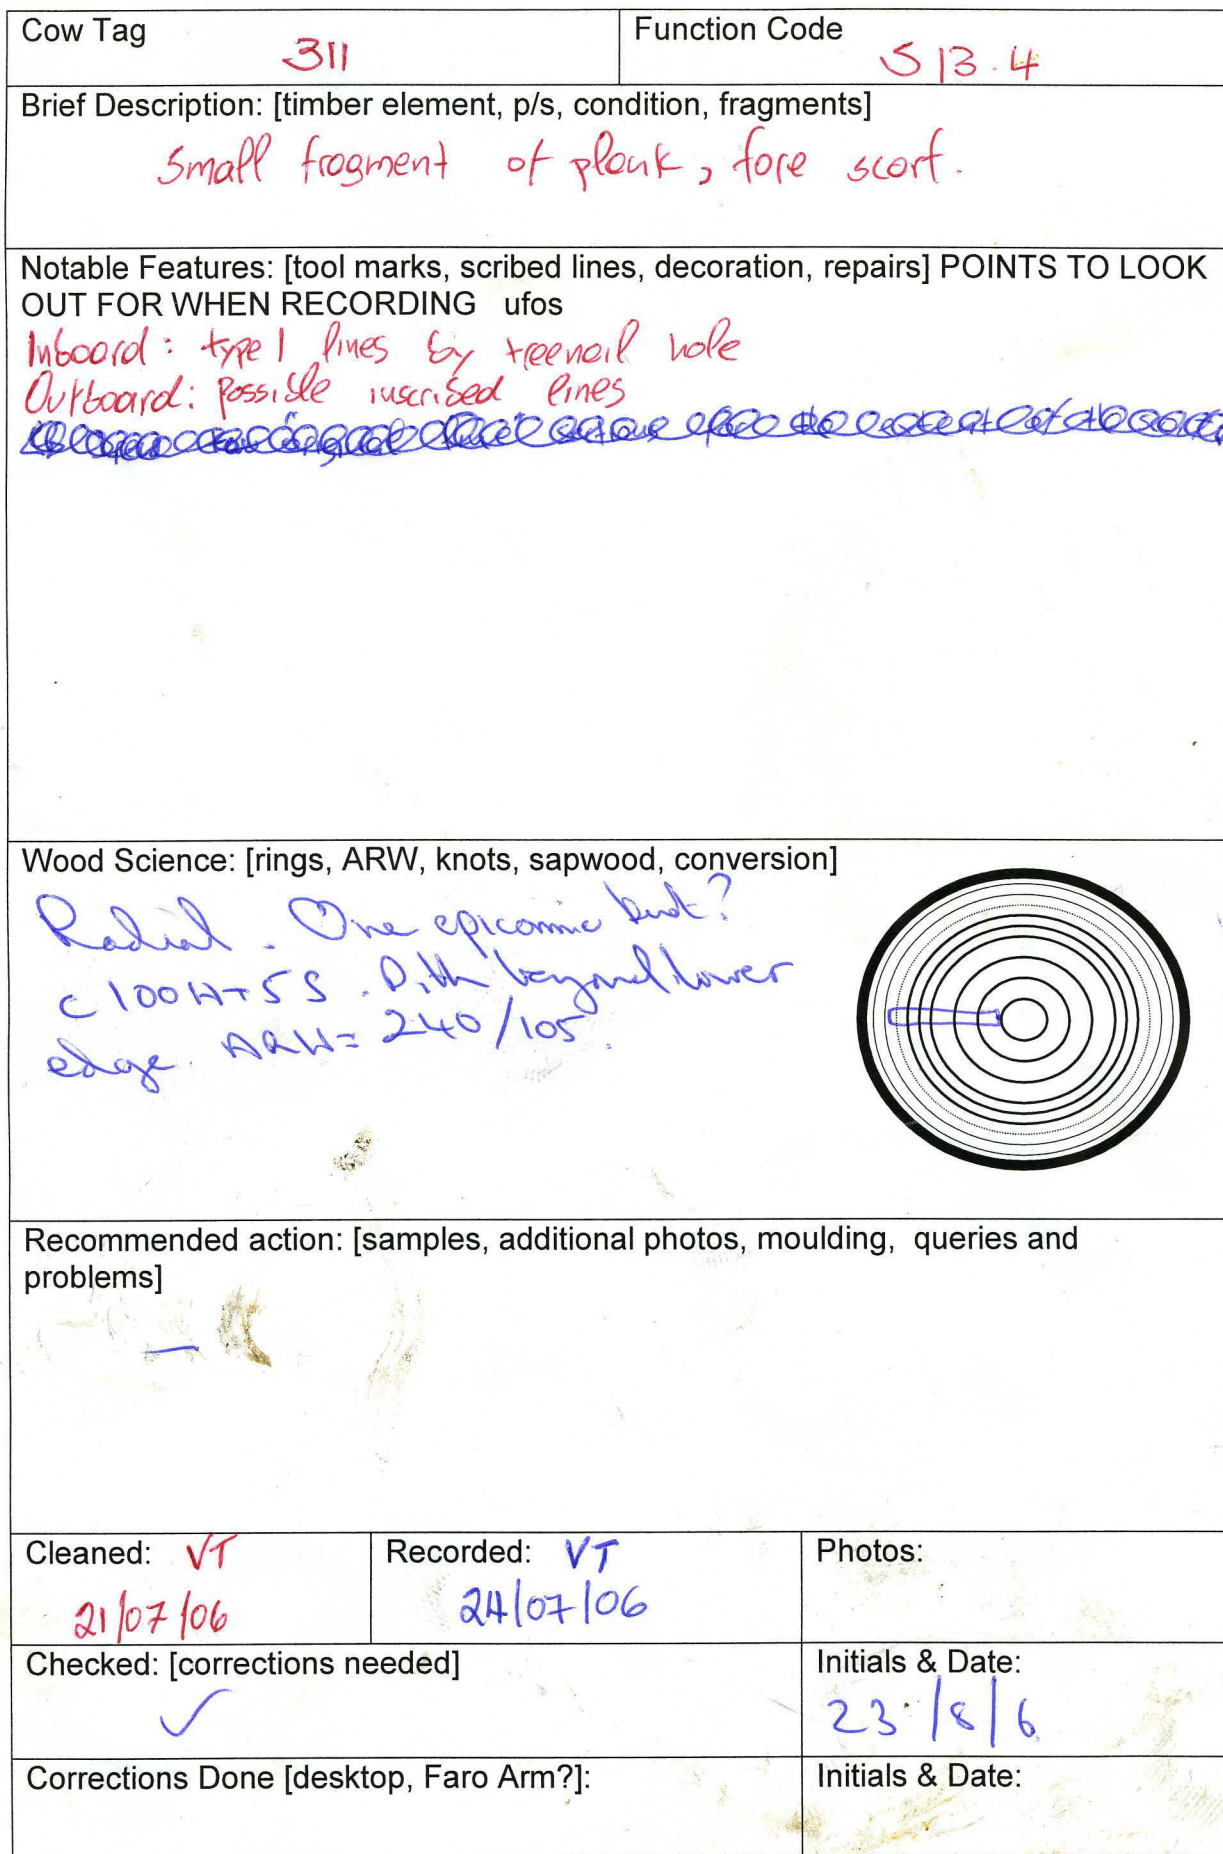 Cow Tag
311
Function Code
S13.4
Brief Description: [timber element, p/s, condition, fragments]
Small fragment of plank, fore scarf.
Notable Features: [tool marks, scribed lines, decoration, repairs] POINTS TO LOOK
OUT FOR WHEN RECORDING ufos
Inboard: type 1 lines by treenail hole
Outboard: Possible inscribed lines
Wood Science: [rings, ARW, knots, sapwood, conversion]
Radial. One epicormic knot?
c 100H+5S. Pith beyond lower
edge. ARW= 240/105.
Recommended action: [samples, additional photos, moulding, queries and
problems]
—
Cleaned: VT
21/07/06
Recorded: VT
24/07/06
Photos:
Checked: [corrections needed]
✓
Initials & Date:
23/8/6
Corrections Done [desktop, Faro Arm?]:
Initials & Date: